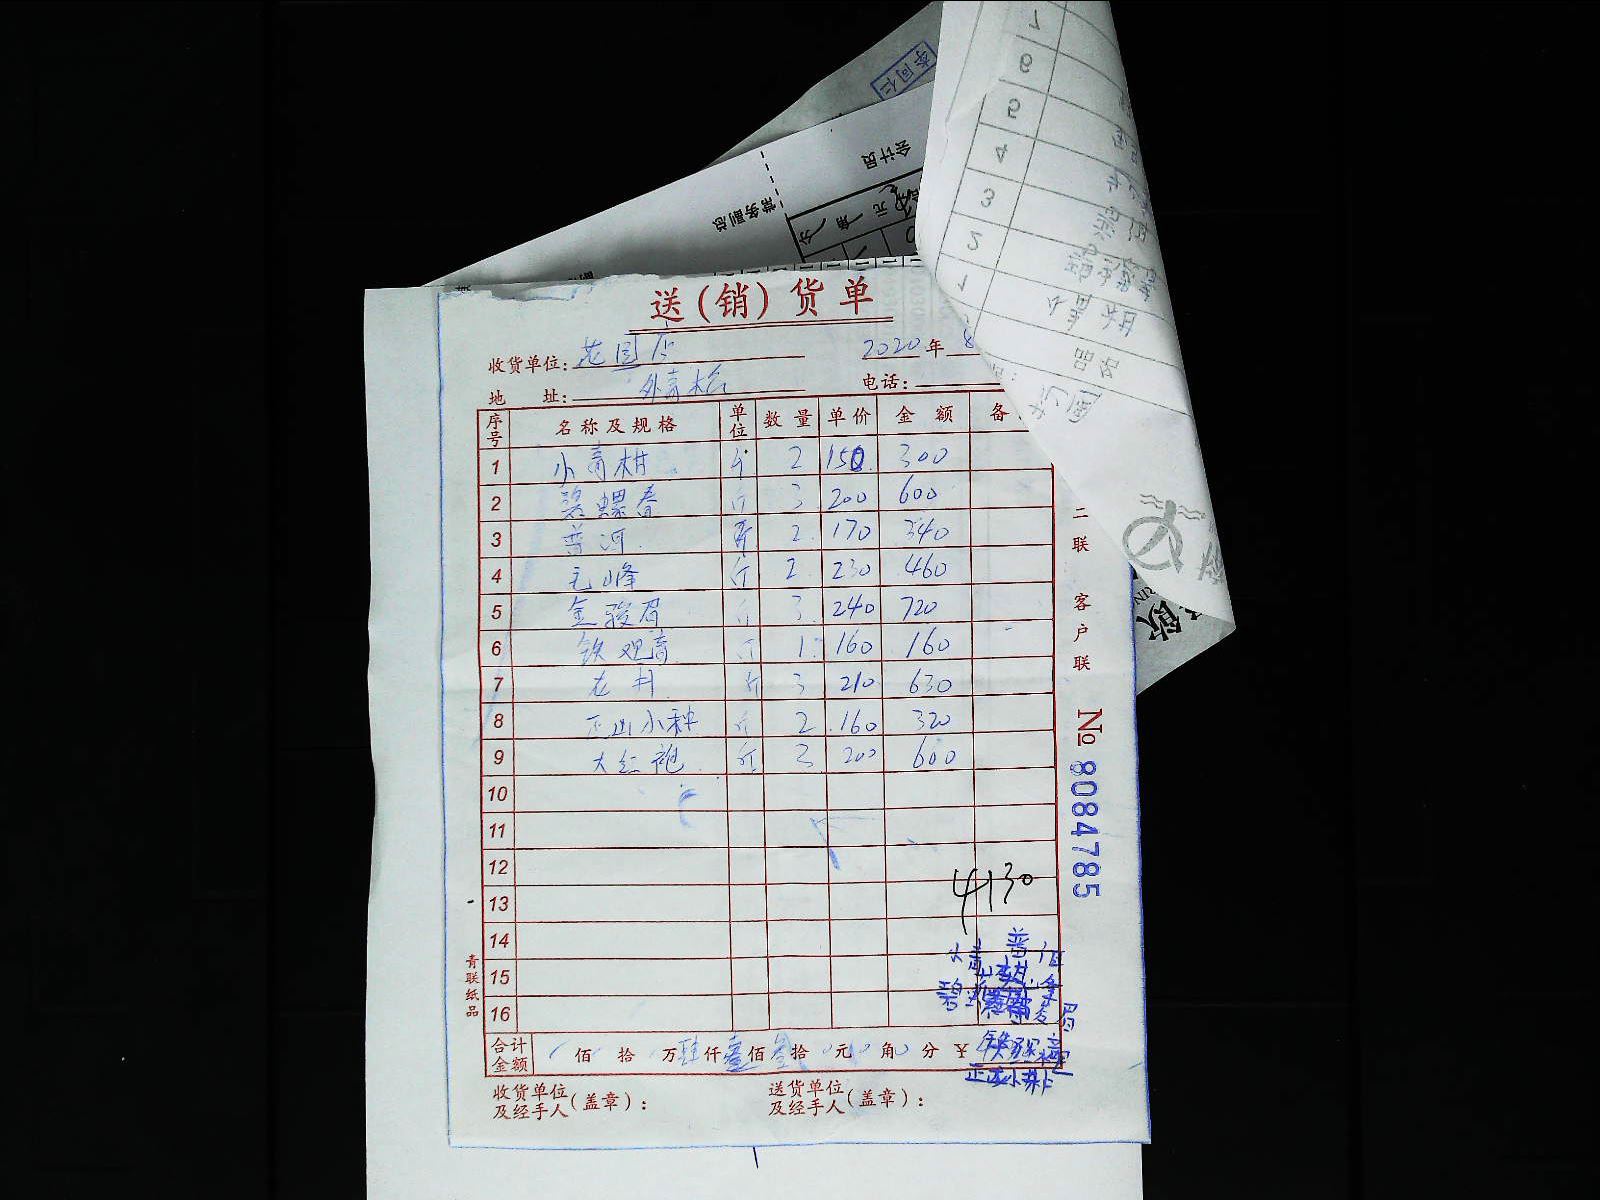 李同仁
会计员
常务副总
分 角 元
7
6
5
4
3
2
1
品名
送(销)货单
收货单位: 花园店
2020年8
地 址: 外青松
电话:
序号 名称及规格 单位 数量 单价 金额 备
1 小青柑 斤 2 150 300
2 碧螺春 斤 3 200 600
3 普洱 斤 2 170 340
4 毛峰 斤 2 230 460
5 金骏眉 斤 3 240 720
6 铁观音 斤 1 160 160
7 龙井 斤 3 210 630
8 正山小种 斤 2 160 320
9 大红袍 斤 3 200 600
10
11
12
13
14
15
16
4130
合计金额 佰 拾 万肆仟壹佰叁拾0元0角0分 ¥
收货单位及经手人(盖章):
送货单位及经手人(盖章):
二联 客户联
No 8084785
青联纸品